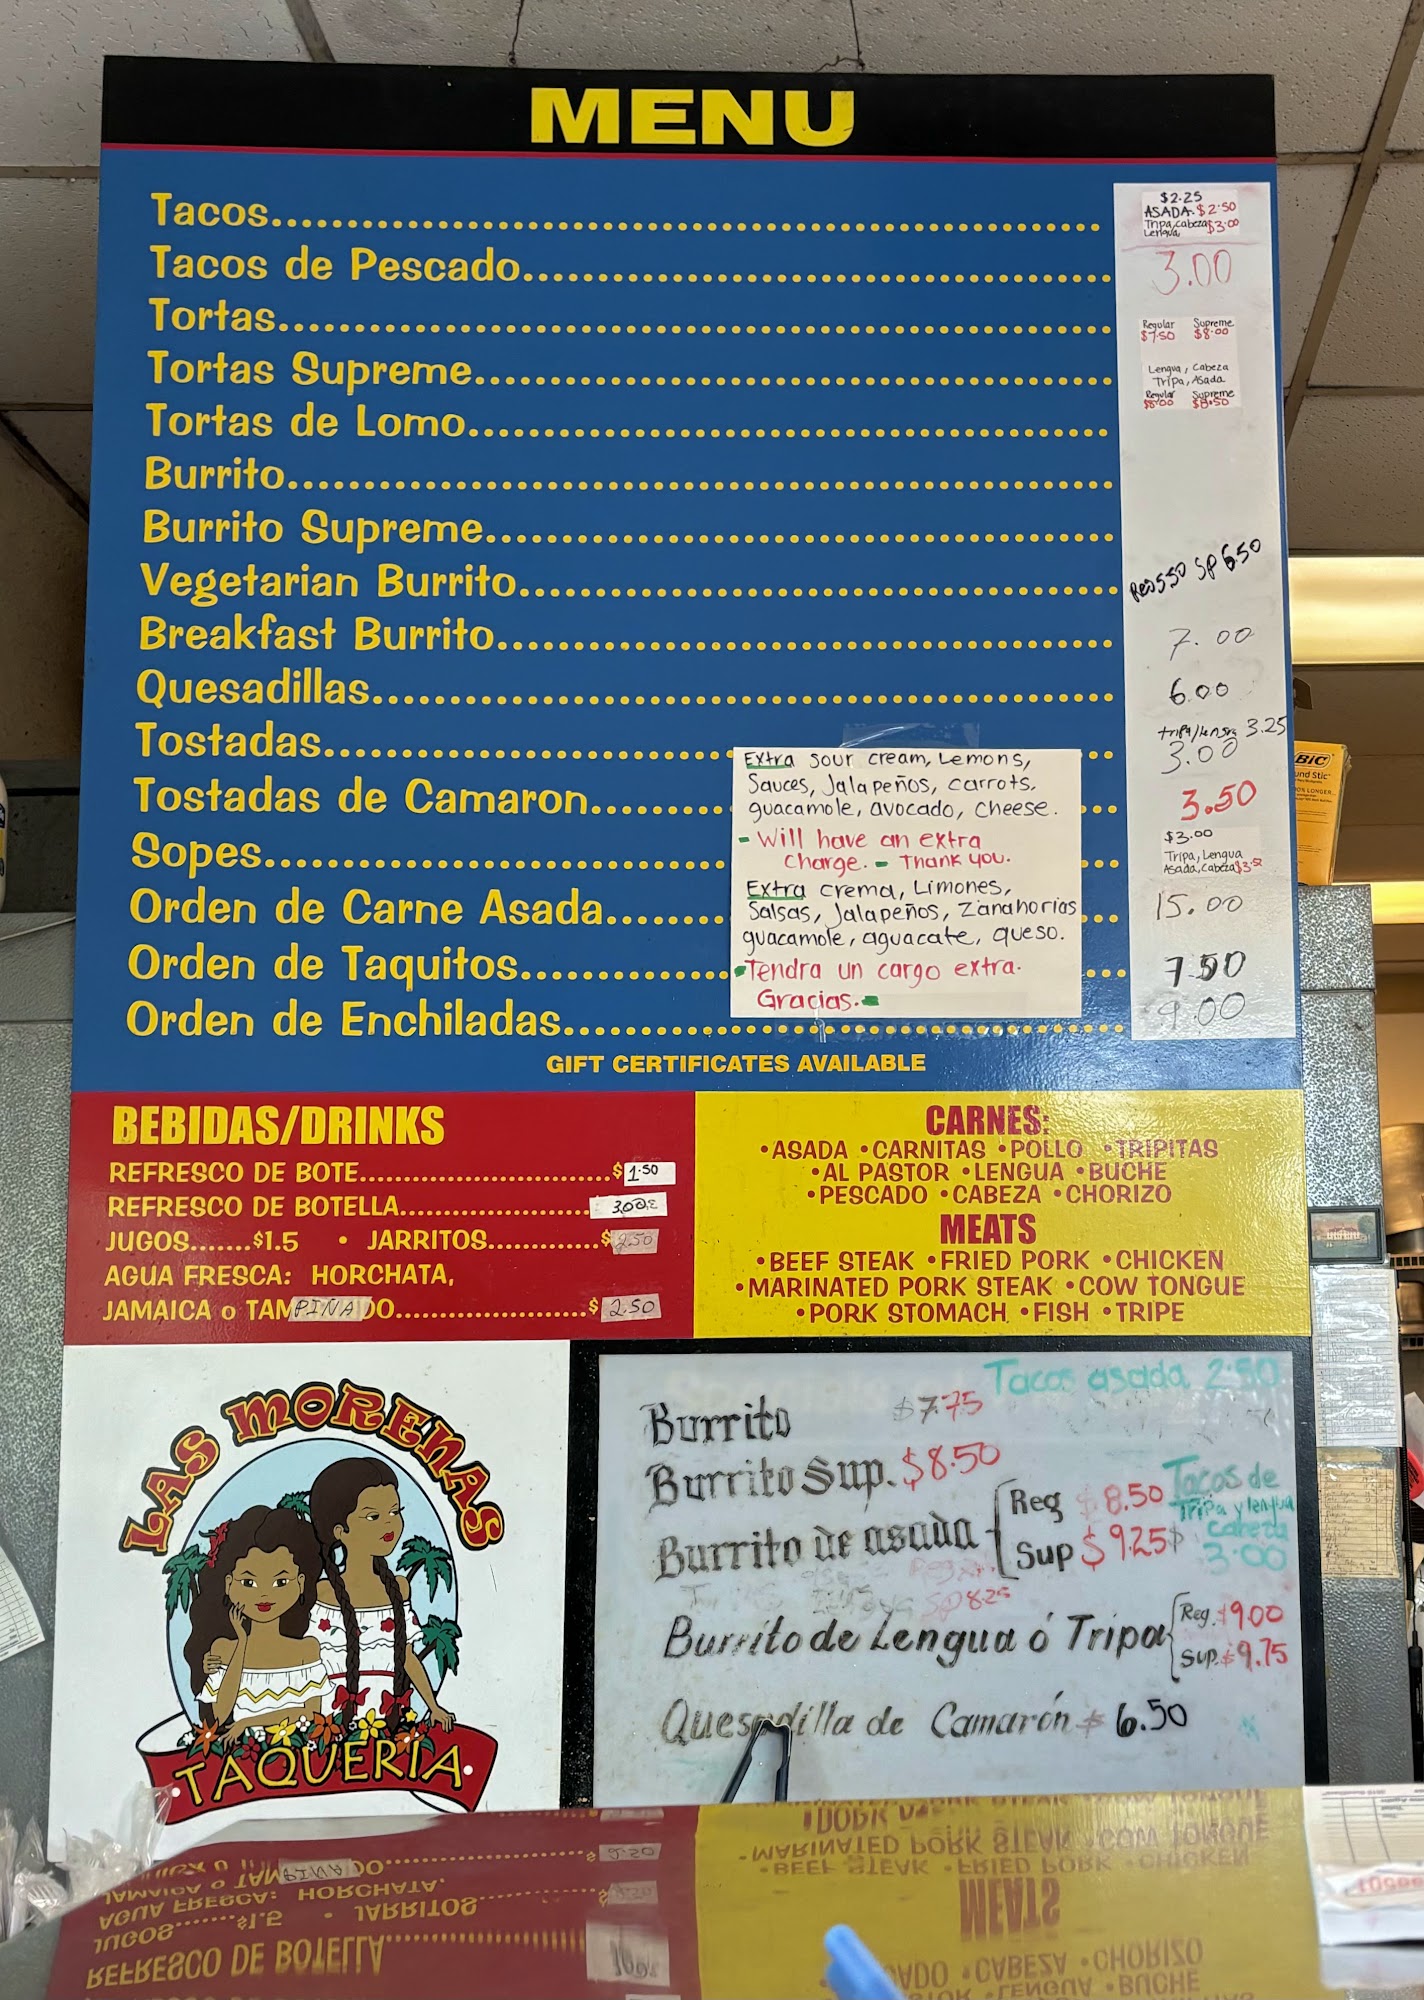 MENU
Tacos
$2.25
ASADA $2.50
Tripa, cabeza $3.00
Lengua,
Tacos de Pescado 3.00
Tortas
Regular Supreme
$7.50 $8.00
Tortas Supreme
Lengua, Cabeza
Tripa, Asada
Regular Supreme
$8.00 $8.50
Tortas de Lomo
Burrito
Burrito Supreme
Vegetarian Burrito Reg 5.50 SP 6.50
Breakfast Burrito 7.00
Quesadillas 6.00
Tostadas
tripa/lengua 3.25
3.00
Tostadas de Camaron 3.50
Sopes
$3.00
Tripa, Lengua
Asada, Cabeza
Orden de Carne Asada 15.00
Orden de Taquitos 7.50
Orden de Enchiladas 9.00
Extra sour cream, Lemons,
Sauces, Jalapeños, carrots,
guacamole, avocado, cheese.
- Will have an extra
charge. - Thank you.
Extra crema, Limones,
Salsas, Jalapeños, Zanahorias
guacamole, aguacate, queso.
Tendra un cargo extra.
Gracias. -
GIFT CERTIFICATES AVAILABLE
BEBIDAS/DRINKS
REFRESCO DE BOTE $1.50
REFRESCO DE BOTELLA
JUGOS $1.5 • JARRITOS $2.50
AGUA FRESCA: HORCHATA,
JAMAICA o PIÑA $2.50
CARNES:
•ASADA •CARNITAS •POLLO •TRIPITAS
•AL PASTOR •LENGUA •BUCHE
•PESCADO •CABEZA •CHORIZO
MEATS
•BEEF STEAK •FRIED PORK •CHICKEN
•MARINATED PORK STEAK •COW TONGUE
•PORK STOMACH •FISH •TRIPE
LAS MORENAS
TAQUERIA
Tacos asada 2.50
Burrito $7.75
Burrito Sup. $8.50
Burrito de asada
Reg $8.50
Sup $9.25
Tacos de
Tripa y lengua
cabeza
3.00
SP 8.25
Burrito de Lengua ó Tripa
Reg. $9.00
Sup. $9.75
Quesadilla de Camarón $6.50
BIC